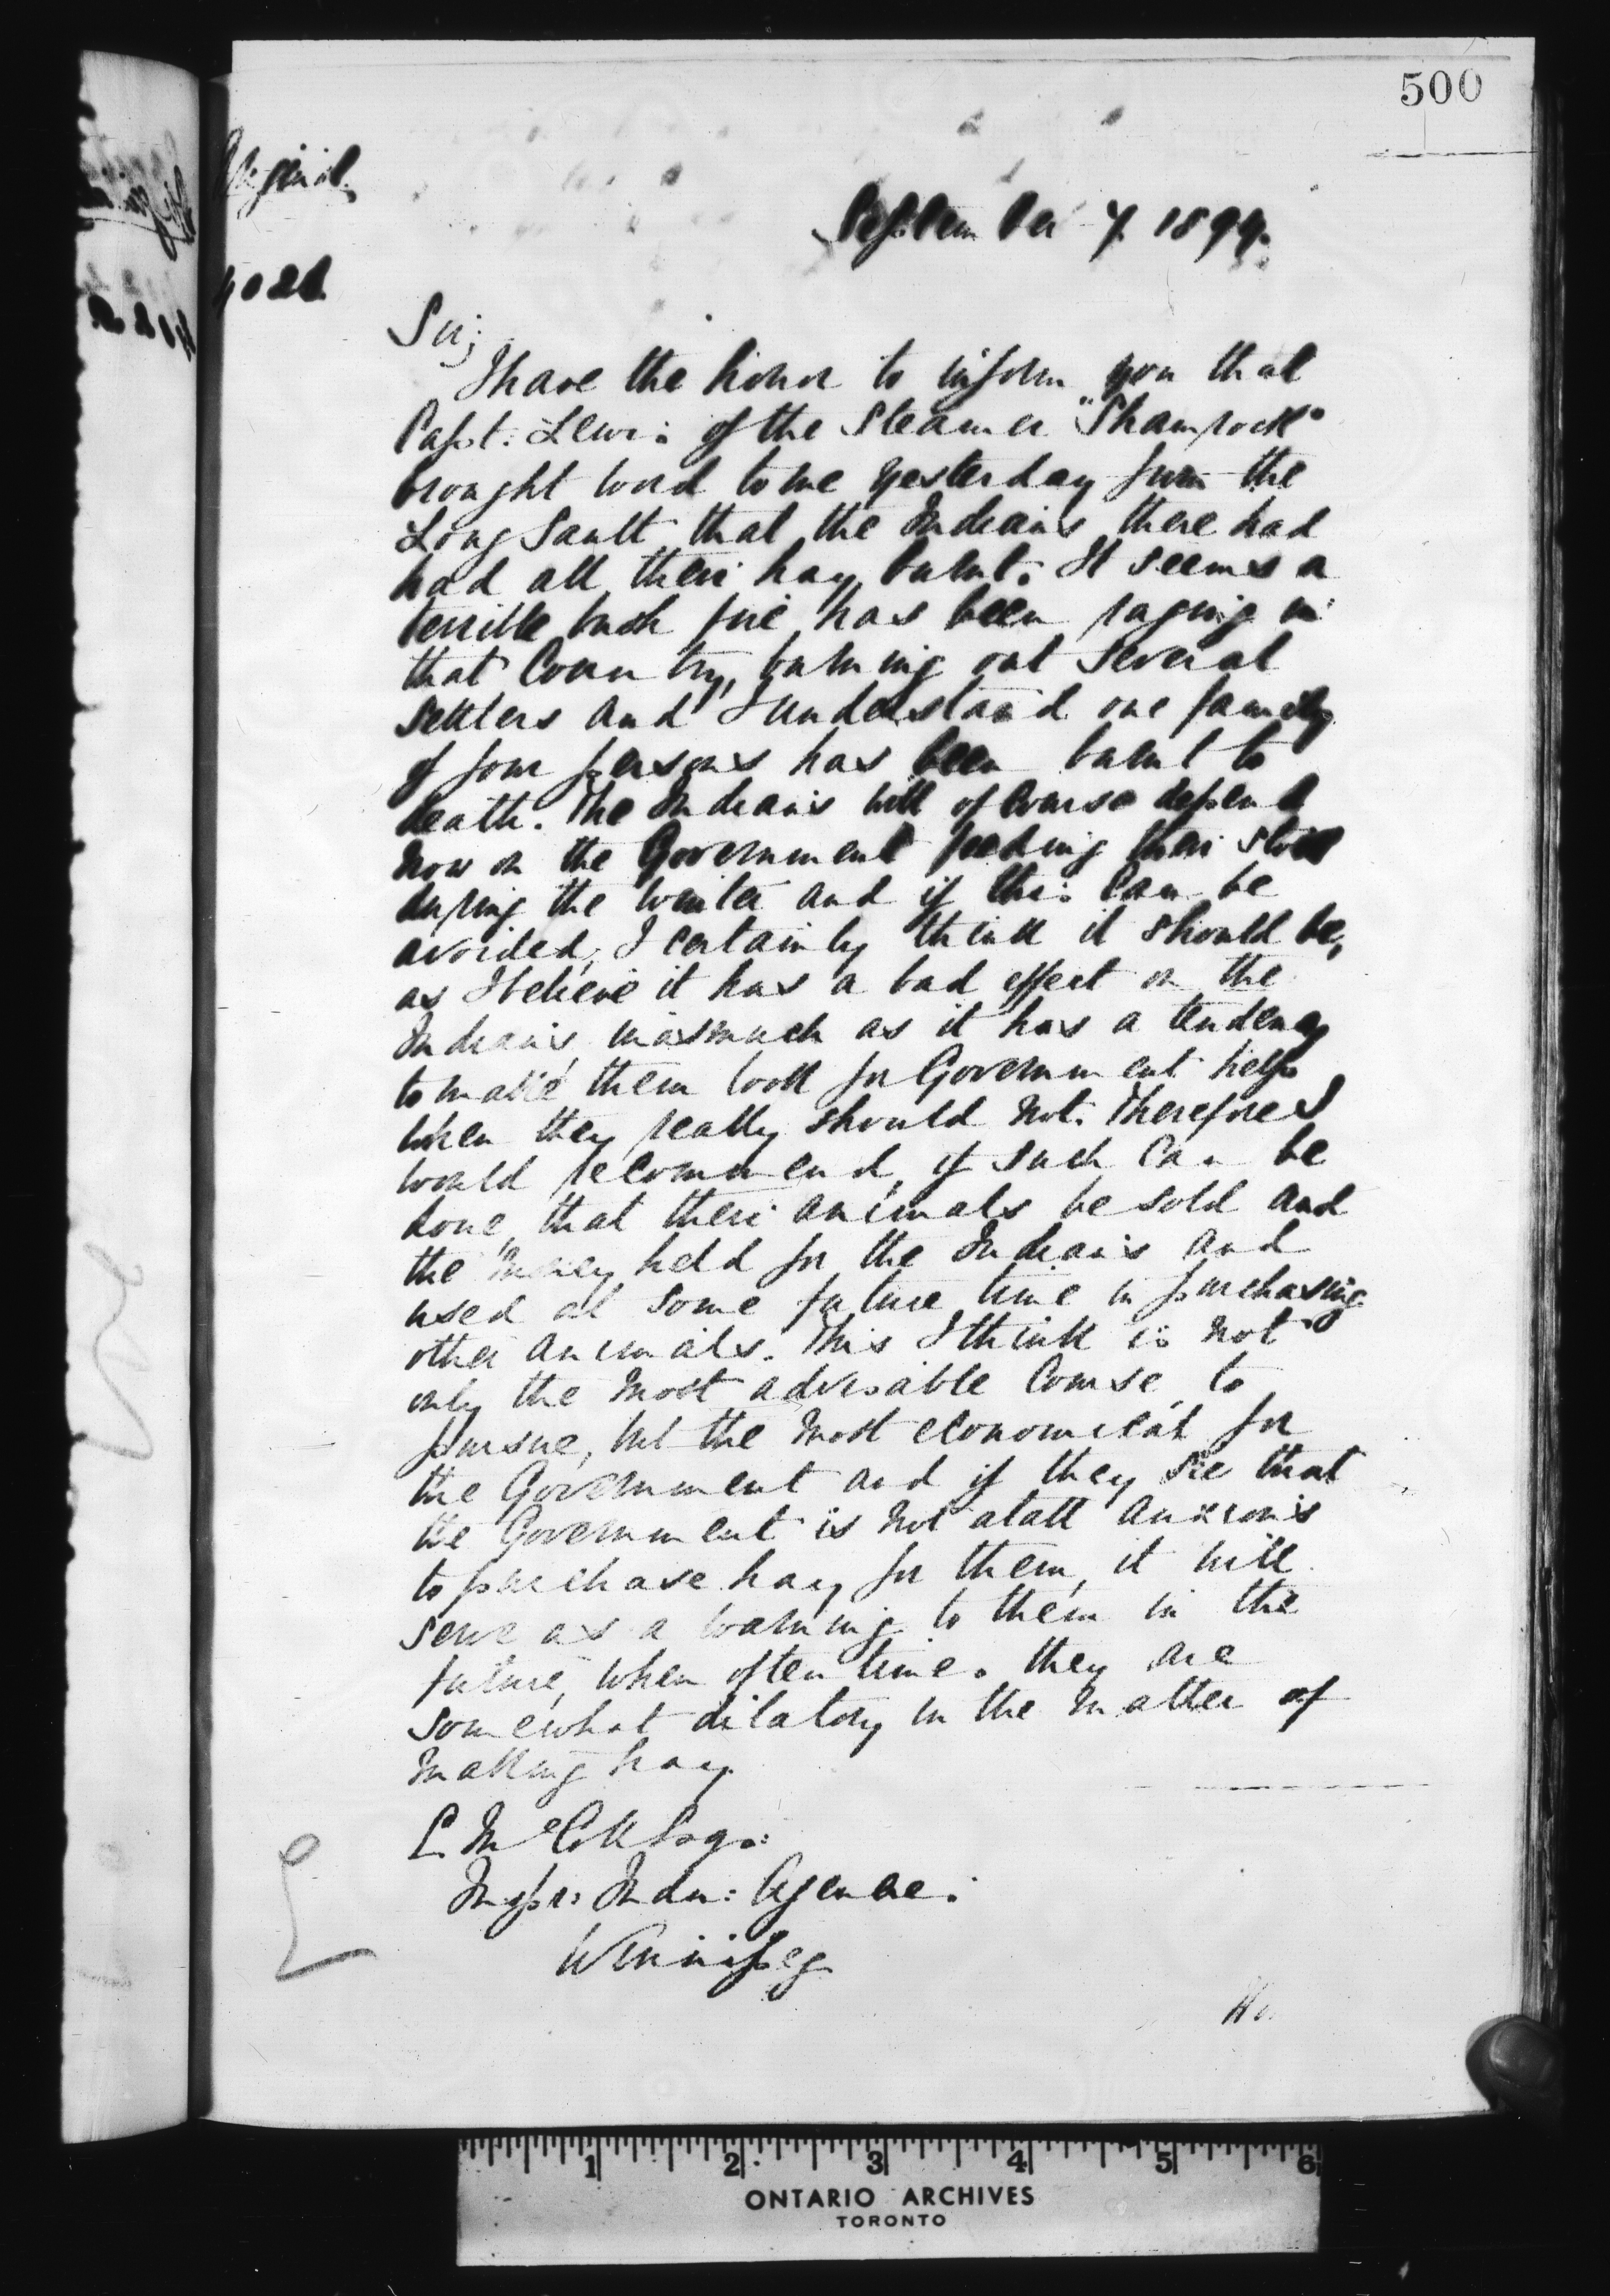 500
September 7. 1899.
Sir;
I have the honor to inform you that
Capt: Lewis of the Steamer "Shamrock"
brought word to me yesterday from the
Long Sault that the Indians there had
had all their hay burnt. It seems a
terrible bush fire has been raging in
that Country, burning out several
settlers and I understand one family
of four persons has been burnt to
death. The Indians will of course depend
now on the Government feeding their stock
during the winter and if this can be
avoided, I certainly think it should be,
as I believe it has a bad effect on the
Indians inasmuch as it has a tendency
to make them look for Government help
when they really should not. Therefore I
would recommend, if such can be
done, that their animals be sold and
the money held for the Indians and
used at some future time in purchasing
other animals. This I think is not
only the most advisable Course to
pursue, but the most economical for
the Government and if they see that
the Government is not atall anxious
to purchase hay for them, it will
serve as a warning to them in the
future, when often times they are
somewhat dilatory in the matter of
making hay.
Inspr: Indn: Agencies
Winnipeg
1 2 3 4 5 6
ONTARIO ARCHIVES
TORONTO